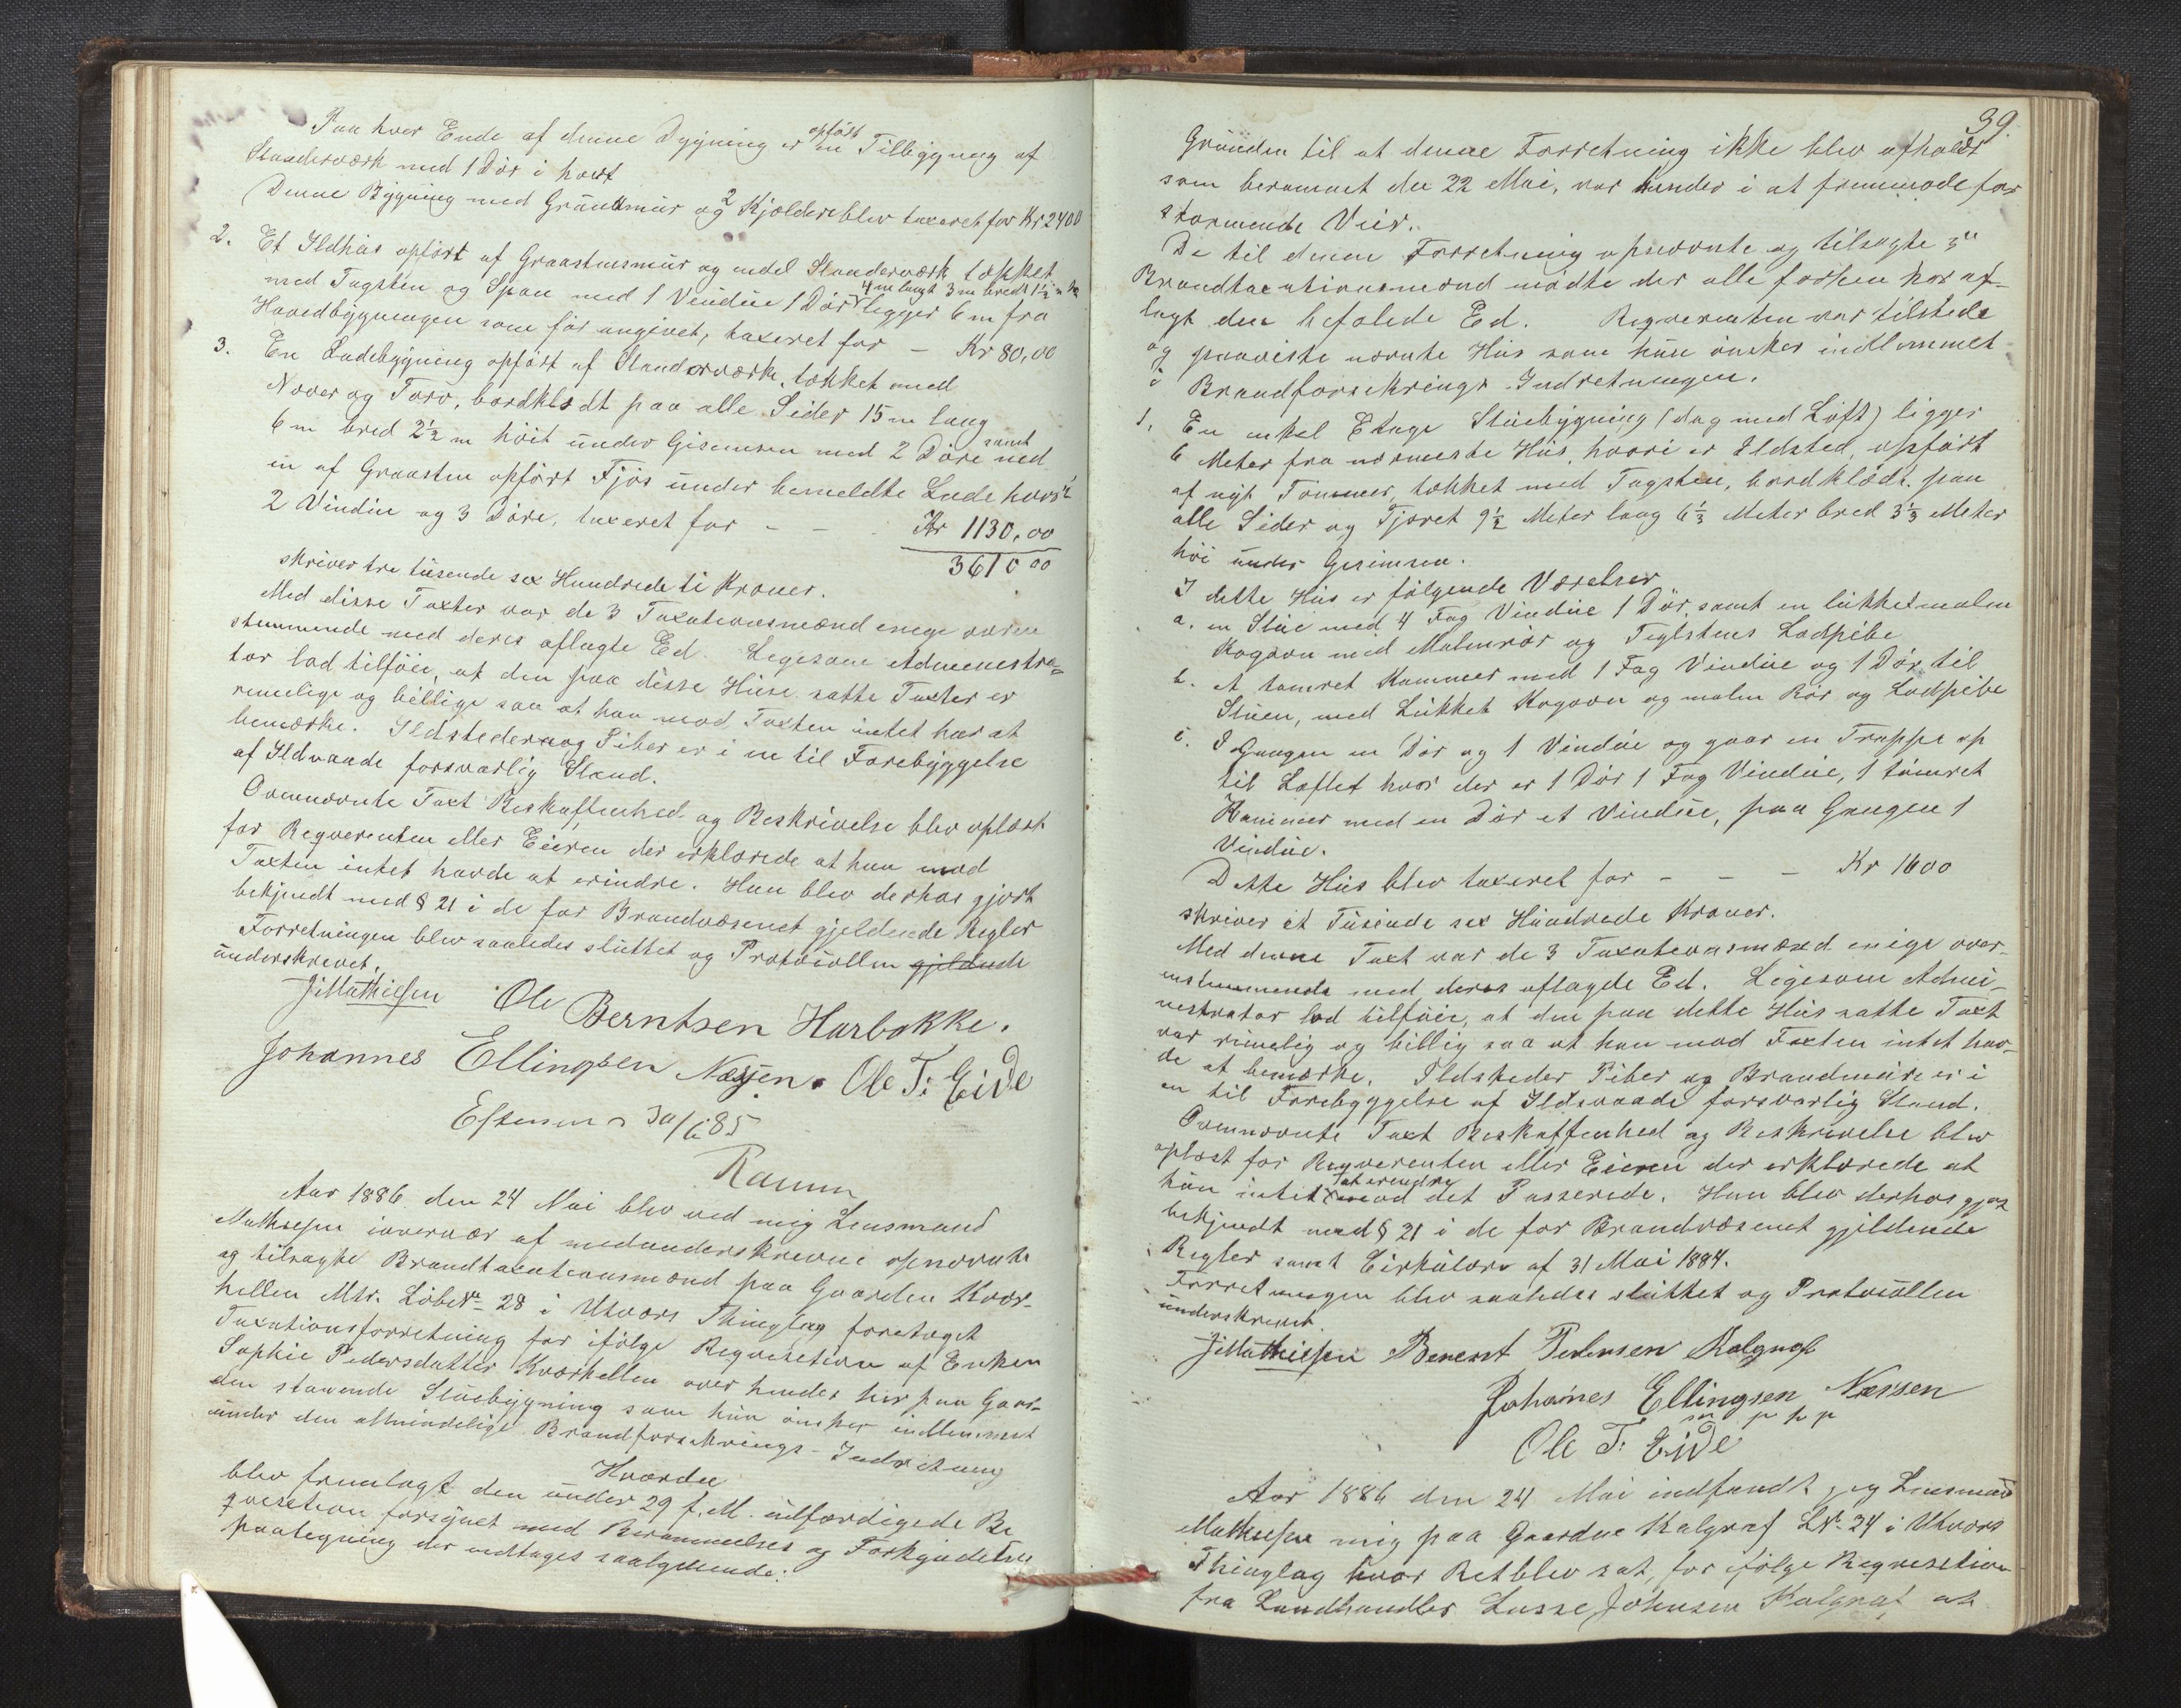 Paa hver Ende af denne Bygning er opført en Tilbygning af
Standerværk med 1 Dør i hvert
Denne Bygning med Grundmur og 2 Kjeldere blev taxeret for Kr 2400
2. Et Ildhus opført af Graastensmur og endel Standerværk tækket
med Tagsten og Spaan med 1 Vindue 1 Dør 4 m langt 3 m bredt 1½ m ligger 6 m fra
Hovedbygningen som før angivet, taxeret for – Kr 80,00
3. En Ladebygning opført af Standerværk, tækket med
Næver og Torv, bordklædt paa alle Sider 15 m lang
6 m bred 2½ m høit under Gisemsen med 2 Døre samt ned
en af Graasten opført Fjøs under bemeldte Lade hvori
2 Vindue og 3 Døre, taxeret for – – Kr 1130,00
3610 00
skriver tre tusende sex Hundrede ti Kroner.
Med disse Taxter var de 3 Taxationsmænd enige overen
stemmende med deres aflagte Ed. Ligesom Administra-
tor lod tilføie, at den paa disse Huse satte Taxter er
rimelige og billige saa at han mod Taxten intet har at
bemærke. Ildstederne og Piber er i en til Forebyggelse
af Ildvaade forsvarlig Stand.
Ovennævnte Taxt Beskaffenhed og Beskrivelse blev oplæst
for Reqverenten eller Eieren der erklærede at han mod
Taxten intet havde at erindre. Han blev derhos gjort
bekjendt med § 21 i de for Brandvæsenet gjeldende Regler
Forretningen blev saaledes sluttet og Protocollen gjeldende
underskrevet.
J Mathiesen Ole Berntsen Harbakke.
Johannes Ellingsen Næssjen. Ole T: Eide
30/6 85
Aar 1886 den 24 Mai blev ved mig Lensmand
Mathiesen iovervær af medunderskrevne opnævnte
og tilsagte Brandtaxationsmænd paa Gaarden Kvær-
hellen Mtr. Løbe No 28 i Utvær Thinglag foretaget
Taxationsforretning for ifølge Reqvisition af Enken
Sophie Pedersdatter Kværhellen over hendes her paa Gaar-
den staaende Stuebygning som hun ønsker indlemmet
under den almindelige Brandforsikrings-Indretning
Hvorda
blev fremlagt den under 29 f. M. udfærdigede Re
qvisition forsynet med Berammelses og Forkyndelses
paategning der indtages saalydende:
39.
Grunden til at denne Forretning ikke blev afholdt
som berammet den 22 Mai, var hinder i at fremmøde for
stormende Veir.
De til denne Forretning opnævnte og tilsagte 3de
Brandtaxationsmænd mødte der alle forhen har af-
lagt den befalede Ed. Reqverenten var tilstede
og paaviste nævnte Hus som hun ønsker indlemmet
i Brandforsikrings-Indretningen.
1. En enkel Etage Stuebygning (dog med Loft) ligger
6 Meter fra nærmeste Hus, hvori er Ildsted, opført
af nyt Tømmer, tækket med Tagsten, bordklædt paa
alle Sider og Tjæret 9½ Meter lang 6⅓ Meter bred 3⅓ Meter
høi under Gesimsen.
I dette Hus er følgende Værelser
a. en Stue med 4 Fag Vindue 1 Dør, samt en lukket malm
Kogovn med Malmrør og Teglstens Lodpibe
b. et tømret Kammer med 1 Fag Vindue og 1 Dør til
Stuen, med Lukket Kogovn og malm Rør og Lodpibe
c. I Gangen en Dør og 1 Vindue og gaar en Trappe op
til Loftet hvor der er 1 Dør 1 Fag Vindue, 1 tømret
Kammer med en Dør et Vindue, paa Gangen 1
Vindue.
Dette Hus blev taxeret for – – – Kr 1600
skriver et Tusinde sex Hundrede Kroner.
Med denne Taxt var de 3 Taxationsmænd enige over-
enstemmende med deres aflagde Ed. Ligesom Admi-
nestrator lod tilføie, at den paa dette Hus satte Taxt
var rimelig og billig saa at han mod Taxten intet hav-
de at bemærke. Ildsteder Piber og Brandmure er i
en til Forebyggelse af Ildsvaade forsvarlig Stand.
Ovennævnte Taxt Beskaffenhed og Beskrivelse blev
oplæst for Reqverenten eller Eieren der erklærede at
hun intet at erindre mod det Passerede. Hun blev derhos gjort
bekjendt med § 21 i de for Brandvæsenet gjeldende
Regler samt Cirkulære af 31 Mai 1884.
Forretningen blev saaledes sluttet og Protocollen
underskrevet.
J Mathiesen Berent Pedersen Kalgraf
Johanes Ellingsen Næssen
m p h p
Ole T: Eide
Aar 1886 den 24 Mai indfandt jeg Lensmand
Mathiesen mig paa Gaarden Kalgraf LNo 24 i Utvær
Thinglag hvor Ret blev sat, for ifølge Reqvisition
fra Landhandler Lasse Johnsen Kalgraf at